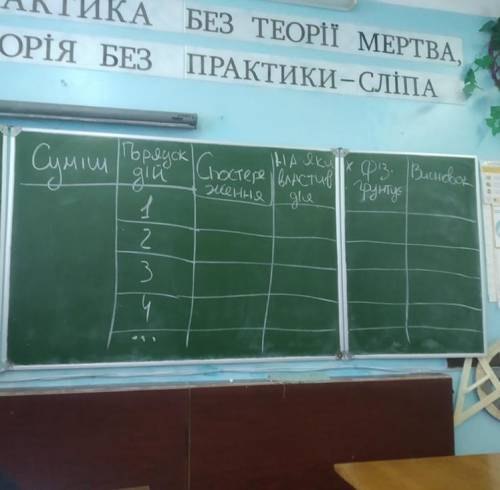 АКТИКА БЕЗ ТЕОРІЇ МЕРТВА,
ОРІЯ БЕЗ ПРАКТИКИ–СЛІПА
Суміш
Порядок
дій
Спостере
ження
На яких
властив
дія
фіз.
грунтує
Висновок
1
2
3
4
...